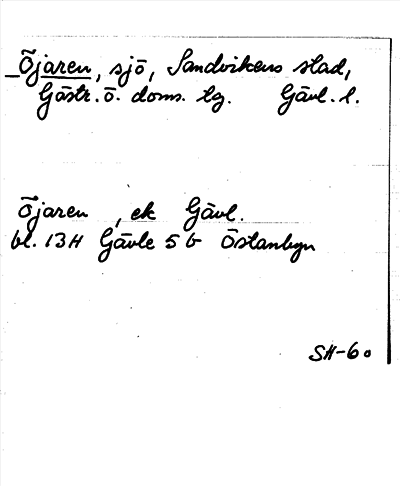 Öjaren, sjö, Sandvikens stad,
Gästr. ö. doms. lg. Gävl. l.
Öjaren , ek Gävl.
bl. 13H Gävle 5 b Östanbyn
SH-60